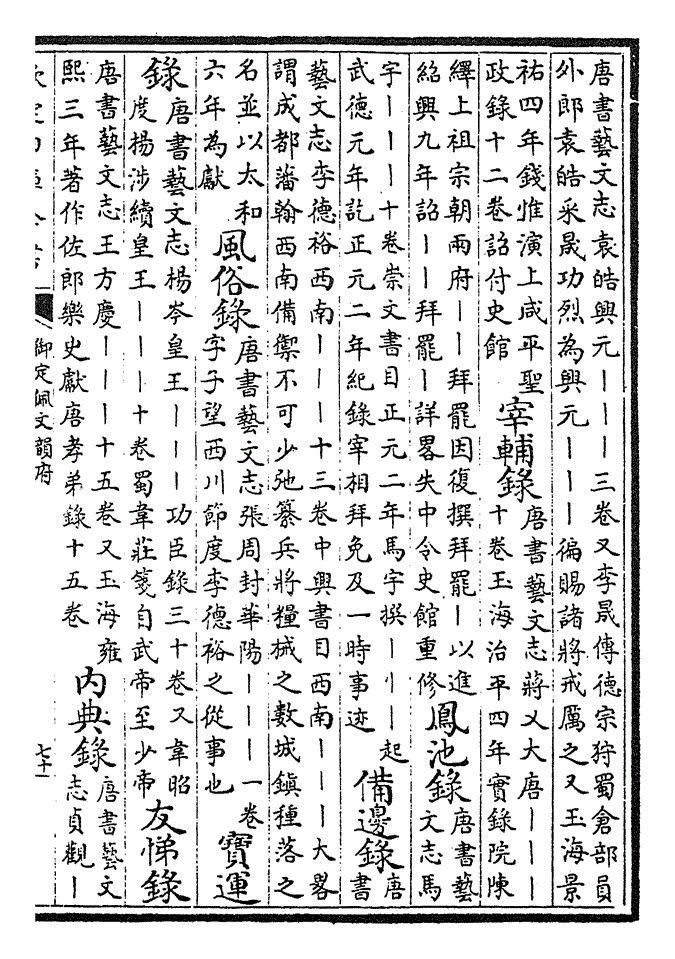 唐書藝文志袁皓興元丨丨丨三卷又李晟傳德宗狩蜀倉部員
外郎袁皓采晟功烈為興元丨丨丨徧賜諸將戒厲之又玉海景
祐四年錢惟演上咸平聖
政錄十二卷詔付史館
宰輔錄
唐書藝文志蔣乂大唐丨丨丨
十卷玉海治平四年實錄院陳
繹上祖宗朝兩府丨丨拜罷因復撰拜罷丨以進
紹興九年詔丨丨拜罷丨詳畧失中令史館重修
鳳池錄
唐書藝
文志馬
宇丨丨丨十卷崇文書目正元二年馬宇撰丨刂丨起
武德元年訖正元二年紀錄宰相拜免及一時事迹
備邊錄
唐
書
藝文志李德裕西南丨丨丨十三卷中興書目西南丨丨丨大畧
謂成都藩翰西南備禦不可少弛纂兵將糧械之數城鎮種落之
名並以太和
六年為獻
風俗錄
唐書藝文志張周封華陽丨丨丨一卷
字子望西川節度李德裕之從事也
寶運
錄
唐書藝文志楊岑皇王丨丨丨功臣錄三十卷又韋昭
度楊涉續皇王丨丨丨十卷蜀韋莊箋自武帝至少帝
友悌錄
唐書藝文志王方慶丨丨丨十五卷又玉海雍
熙三年著作佐郎樂史獻唐孝弟錄十五卷
內典錄
唐書藝文
志貞觀丨
御定佩文韻府